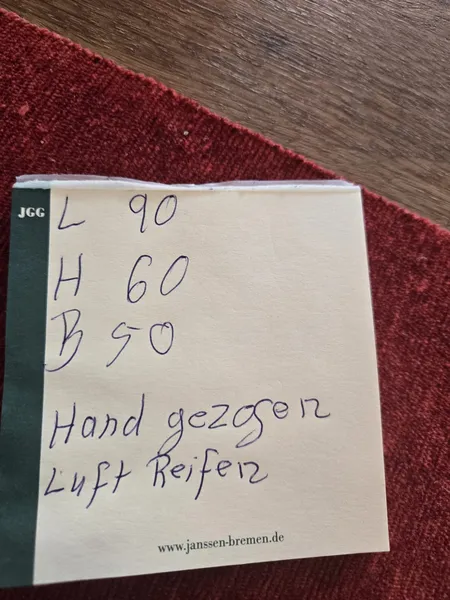 JGG
L 90
H 60
B 50
Hand gezogen
Luft Reifen
www.janssen-bremen.de